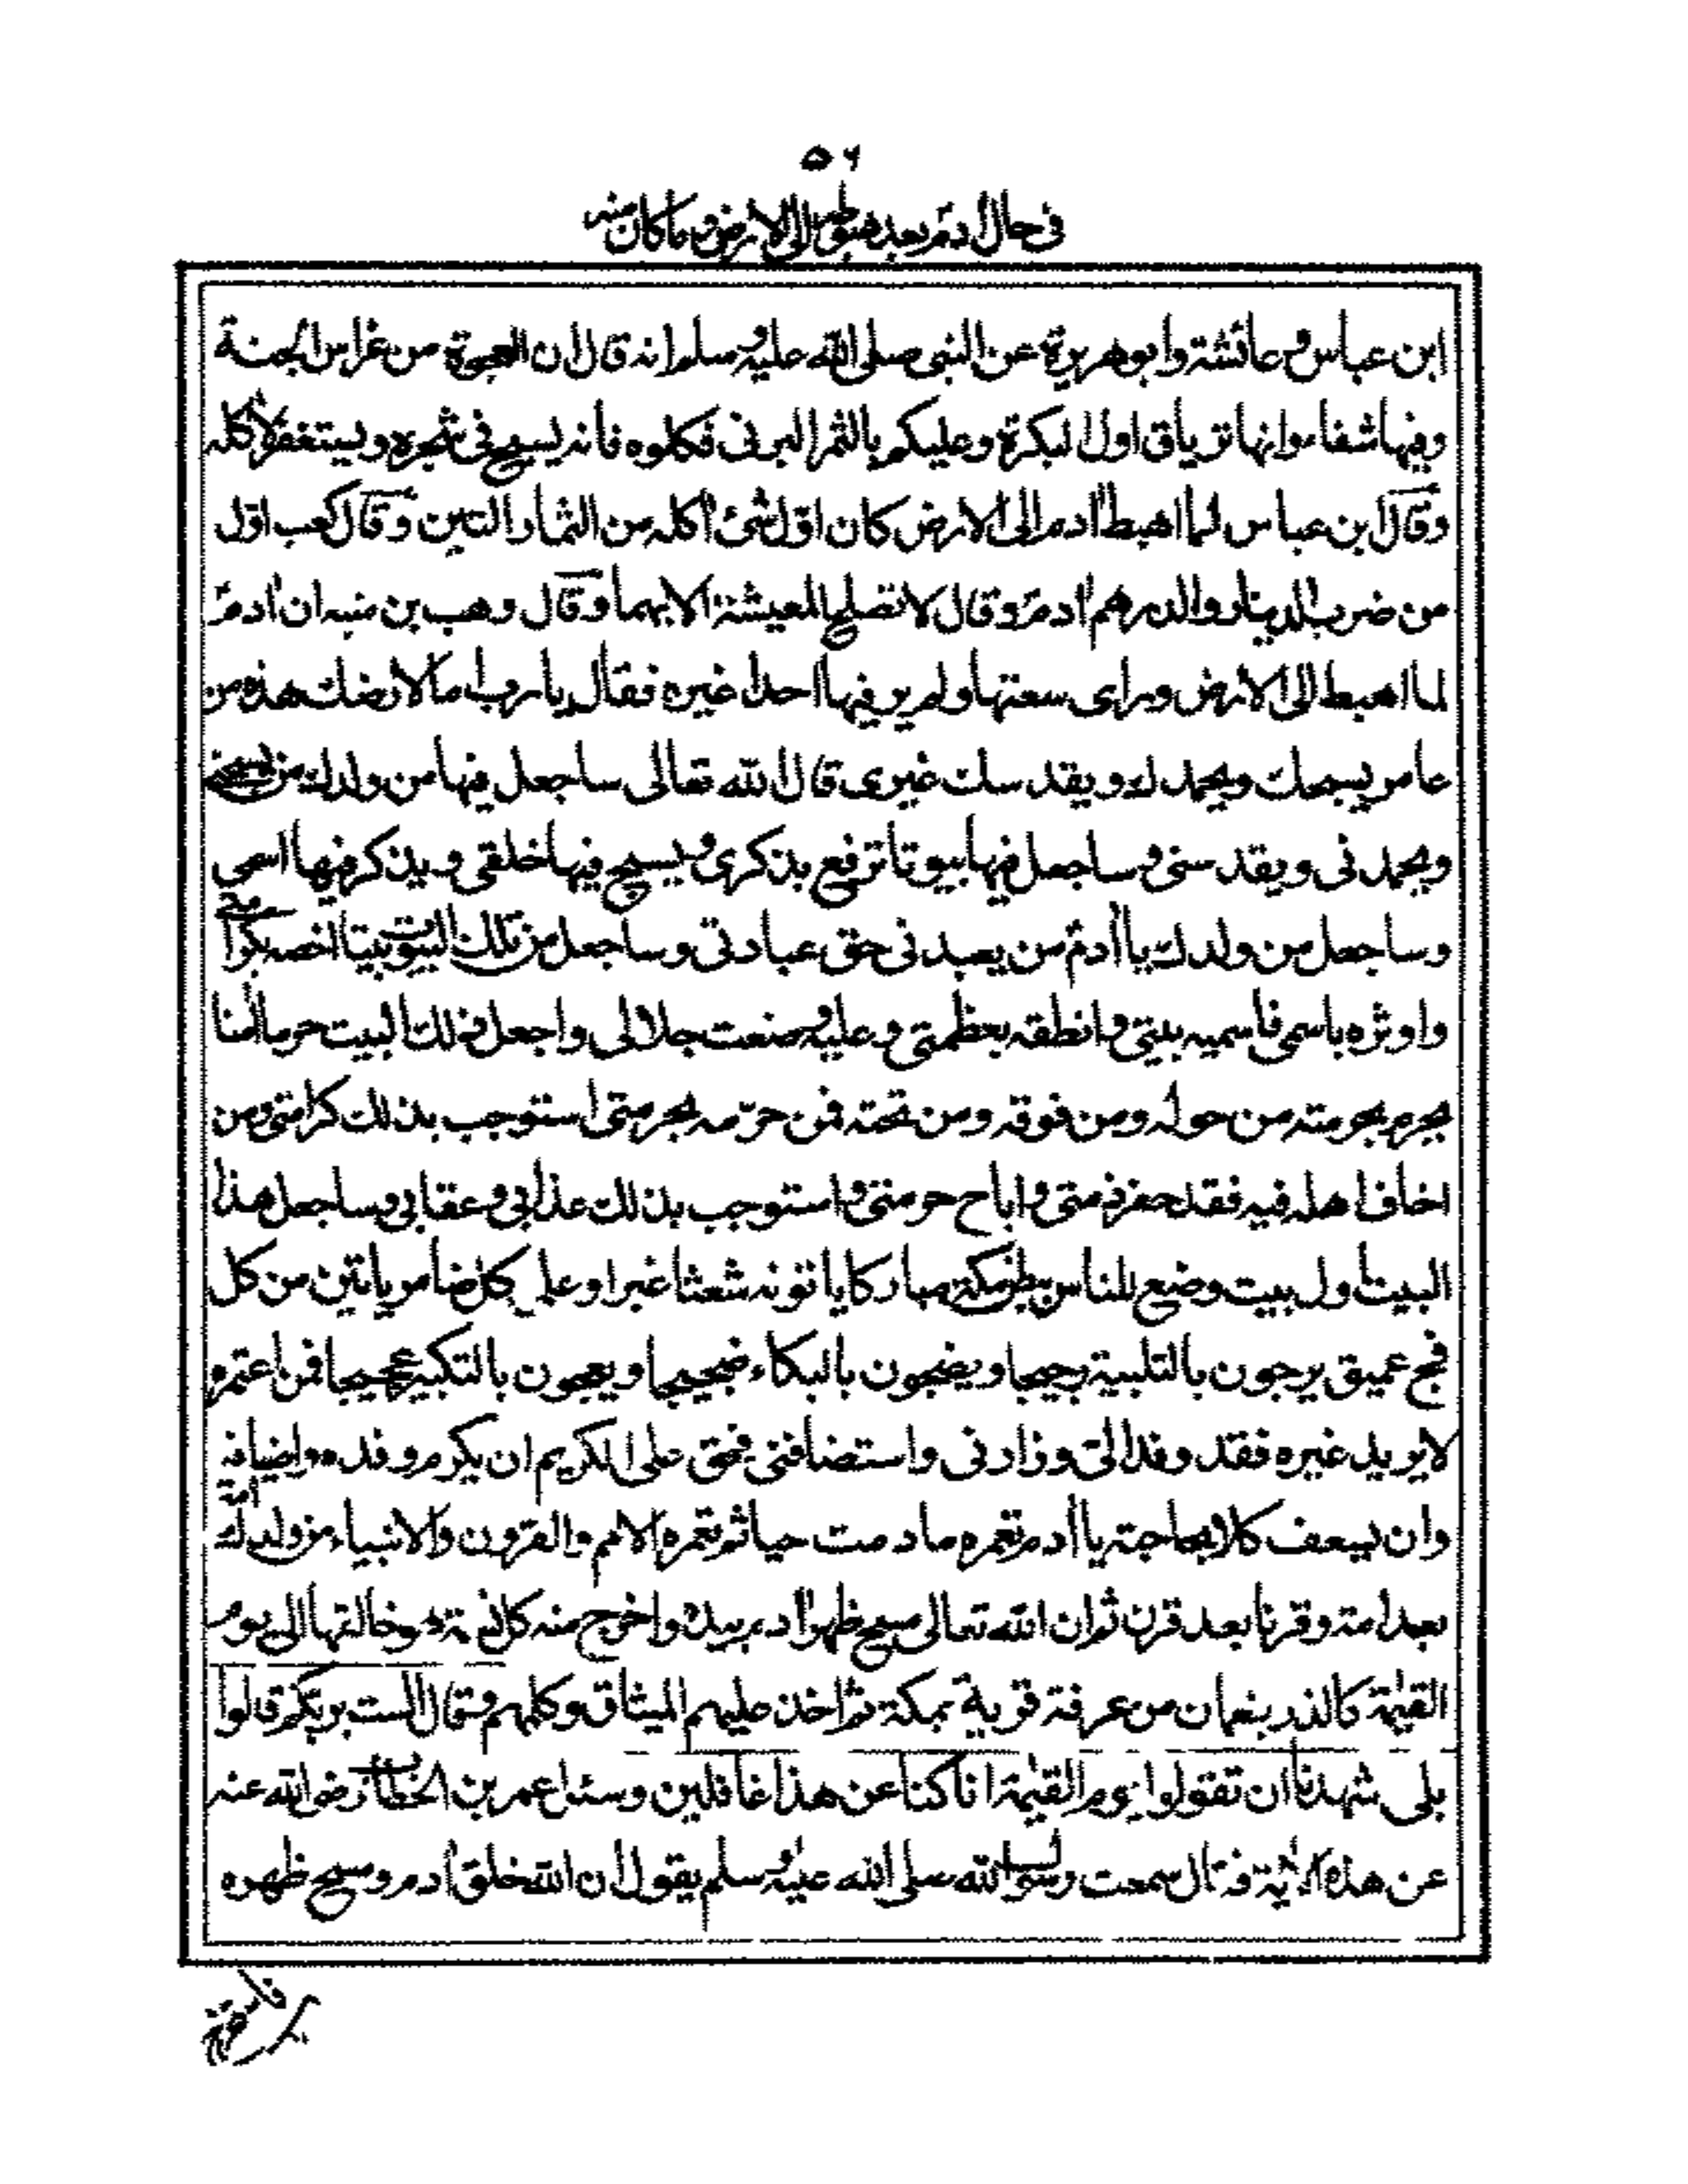 ٥٦
في حال آدم بعد هبوطه الى الارض وما كان منه
ابن عباس وعائشة وابو هريرة عن النبى صلى الله عليه وسلم انه قال ان العجوة من غراس الجنة
وفيها شفاء وانها ترياق اول البكرة وعليكم بالثمر البرنى فكلوه فانه يسبح فى شجره ويستغفر لآكله
وقال ابن عباس لما اهبط آدم الى الارض كان اول شئ اكله من الثمار التين وقال كعب اول
من ضرب الدينار والدرهم آدم وقال لا تصلح المعيشة الا بهما وقال وهب بن منبه ان آدم
لما اهبط الى الارض وراى سعتها ولم ير فيها احدا غيره فقال يا رب اما لارضك هذه من
عامر يسبحك ويحمدك ويقدسك غيرى قال الله تعالى ساجعل فيها من ولدك من يسبحنى
ويحمدنى ويقدسنى وساجعل فيها بيوتا ترفع بذكرى ويسبح فيها خلقى ويذكر فيها اسمى
وساجعل من ولدك يا آدم من يعبدنى حق عبادتى وساجعل من تلك البيوت بيتا اخصه بكرامتى
واوثره باسمى فاسميه بيتى وانطقه بعظمتى وعليه وضعت جلالى واجعل ذلك البيت حرما آمنا
يحرم بحرمته من حوله ومن فوقه ومن تحته فمن حرّمه بحرمتى استوجب بذلك كرامتى ومن
اخاف اهله فيه فقد حفر ذمتى واباح حرمتى واستوجب بذلك عذابى وعقابى وساجعل هذا
البيت اول بيت وضع للناس ببطن مكة مباركا ياتونه شعثا غبرا وعلى كل ضامر ياتين من كل
فج عميق يرجون بالتلبية رجيجا ويضجون بالبكاء ضجيجا ويعجون بالتكبير عجيجا فمن اعتمره
لا يريد غيره فقد وفد الىّ وزارنى واستضافنى فحق على الكريم ان يكرم وفده واضيافه
وان يسعف كلا بحاجته يا آدم تعمره ما دمت حيا ثم تعمره الامم والقرون والانبياء من ولدك امة
بعد امة وقرنا بعد قرن ثم ان الله تعالى مسح ظهر آدم بيده واخرج منه كل نسمة هو خالقها الى يوم
القيمة كالذر بنعمان من عرفة قرية بمكة ثم اخذ عليهم الميثاق وكلمهم وقال الست بربكم قالوا
بلى شهدنا ان تقولوا يوم القيمة انا كنا عن هذا غافلين وسئل عمر بن الخطاب رضى الله عنه
عن هذه الآية فقال سمعت رسول الله صلى الله عليه وسلم يقول ان الله خلق آدم ومسح ظهره